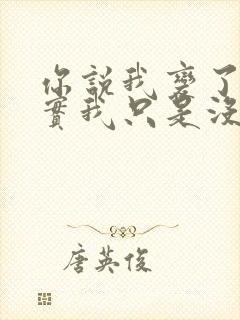 你說我變了
實我只是沒
唐英俊